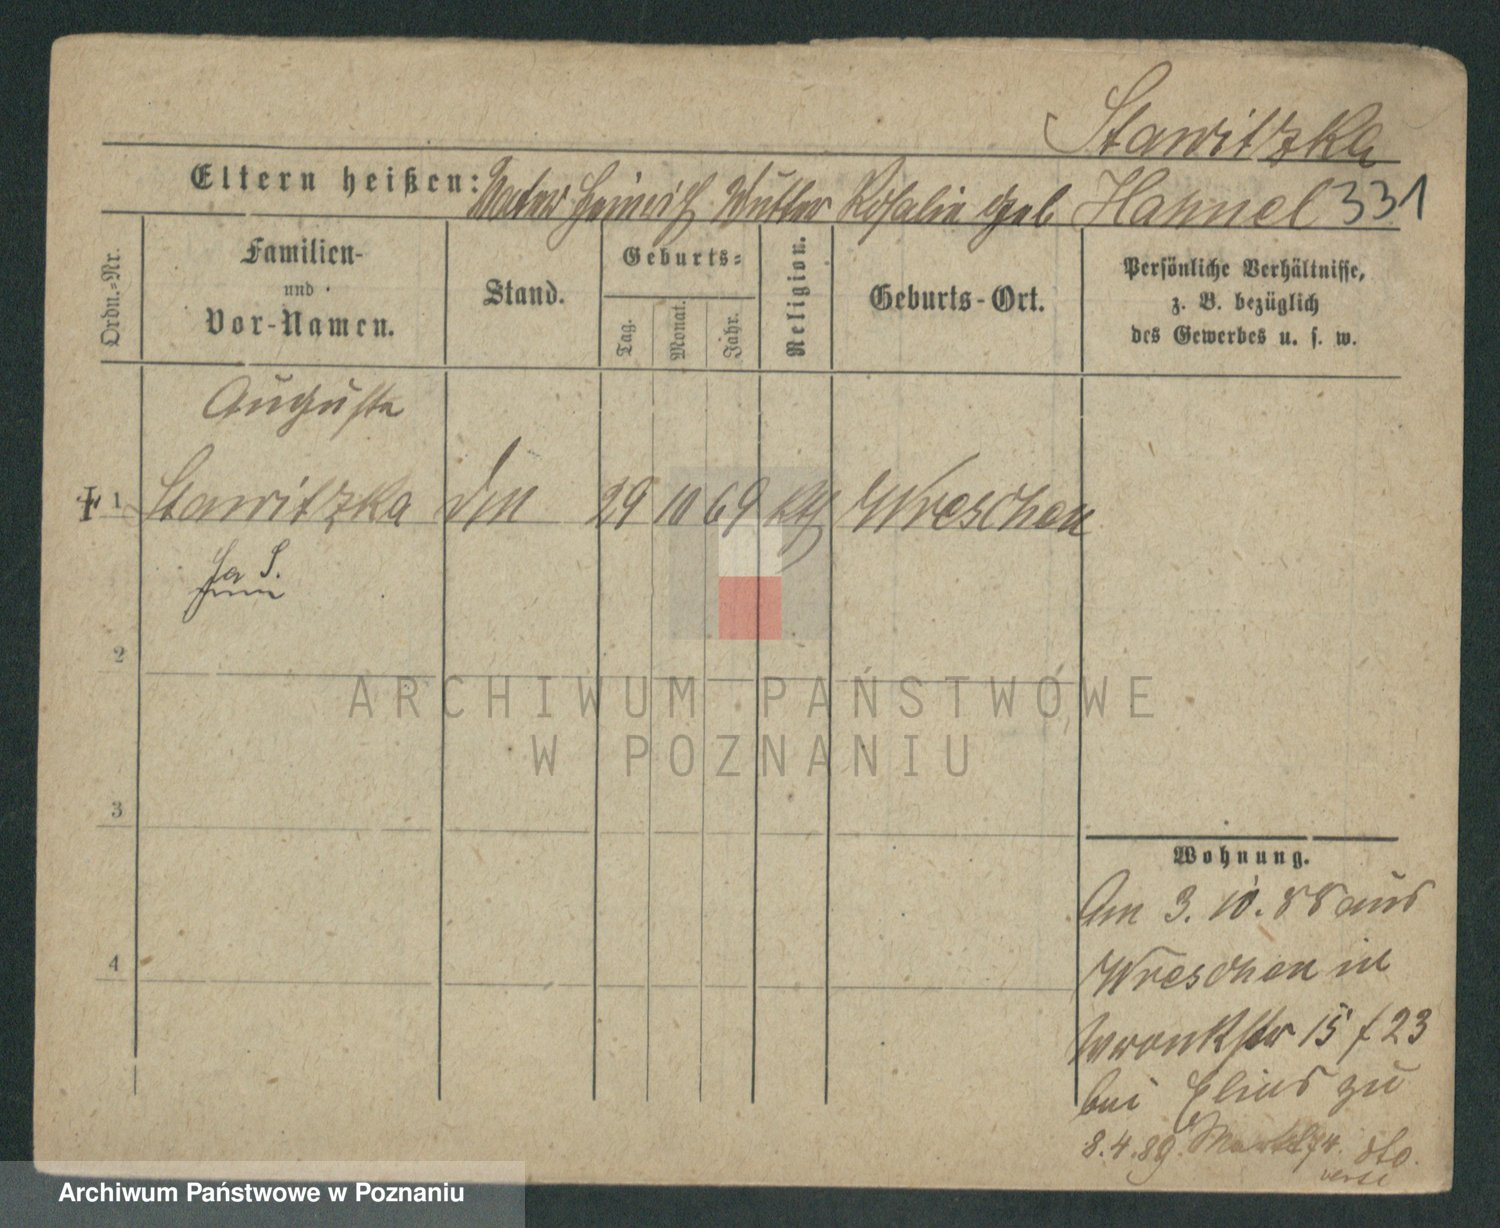 Stawitzka
Eltern heißen: Vater Heinrich Mutter Rosalie geb Hahnel 331
Ordn.-Nr.
Familien-
und
Vor-Namen.
Stand.
Geburts-
Tag.
Monat.
Jahr.
Religion.
Geburts-Ort.
Persönliche Verhältnisse,
z. B. bezüglich
des Gewerbes u. s. w.
Auguste
1 Stawitzka 29 10 69 Wreschen
2
3
4
Wohnung.
Am 3. 10. 88 aus
Wreschen in
Wronkstr 15 f 23
bei Elias zu
8.4.89.
ARCHIWUM PAŃSTWOWE
W POZNANIU
Archiwum Państwowe w Poznaniu